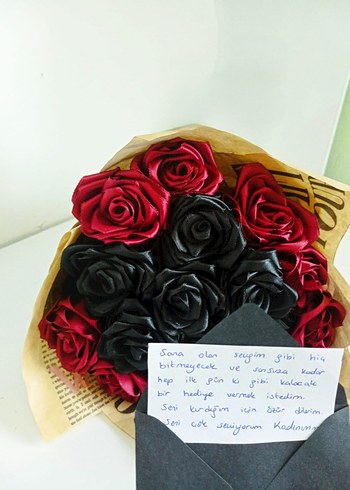 Sana olan sevgim gibi hiç
bitmeyecek ve sonsuza kadar
hep ilk gün ki gibi kalacak
bir hediye vermek istedim.
Seni kırdığım için özür dilerim
Seni çok seviyorum Kadınım